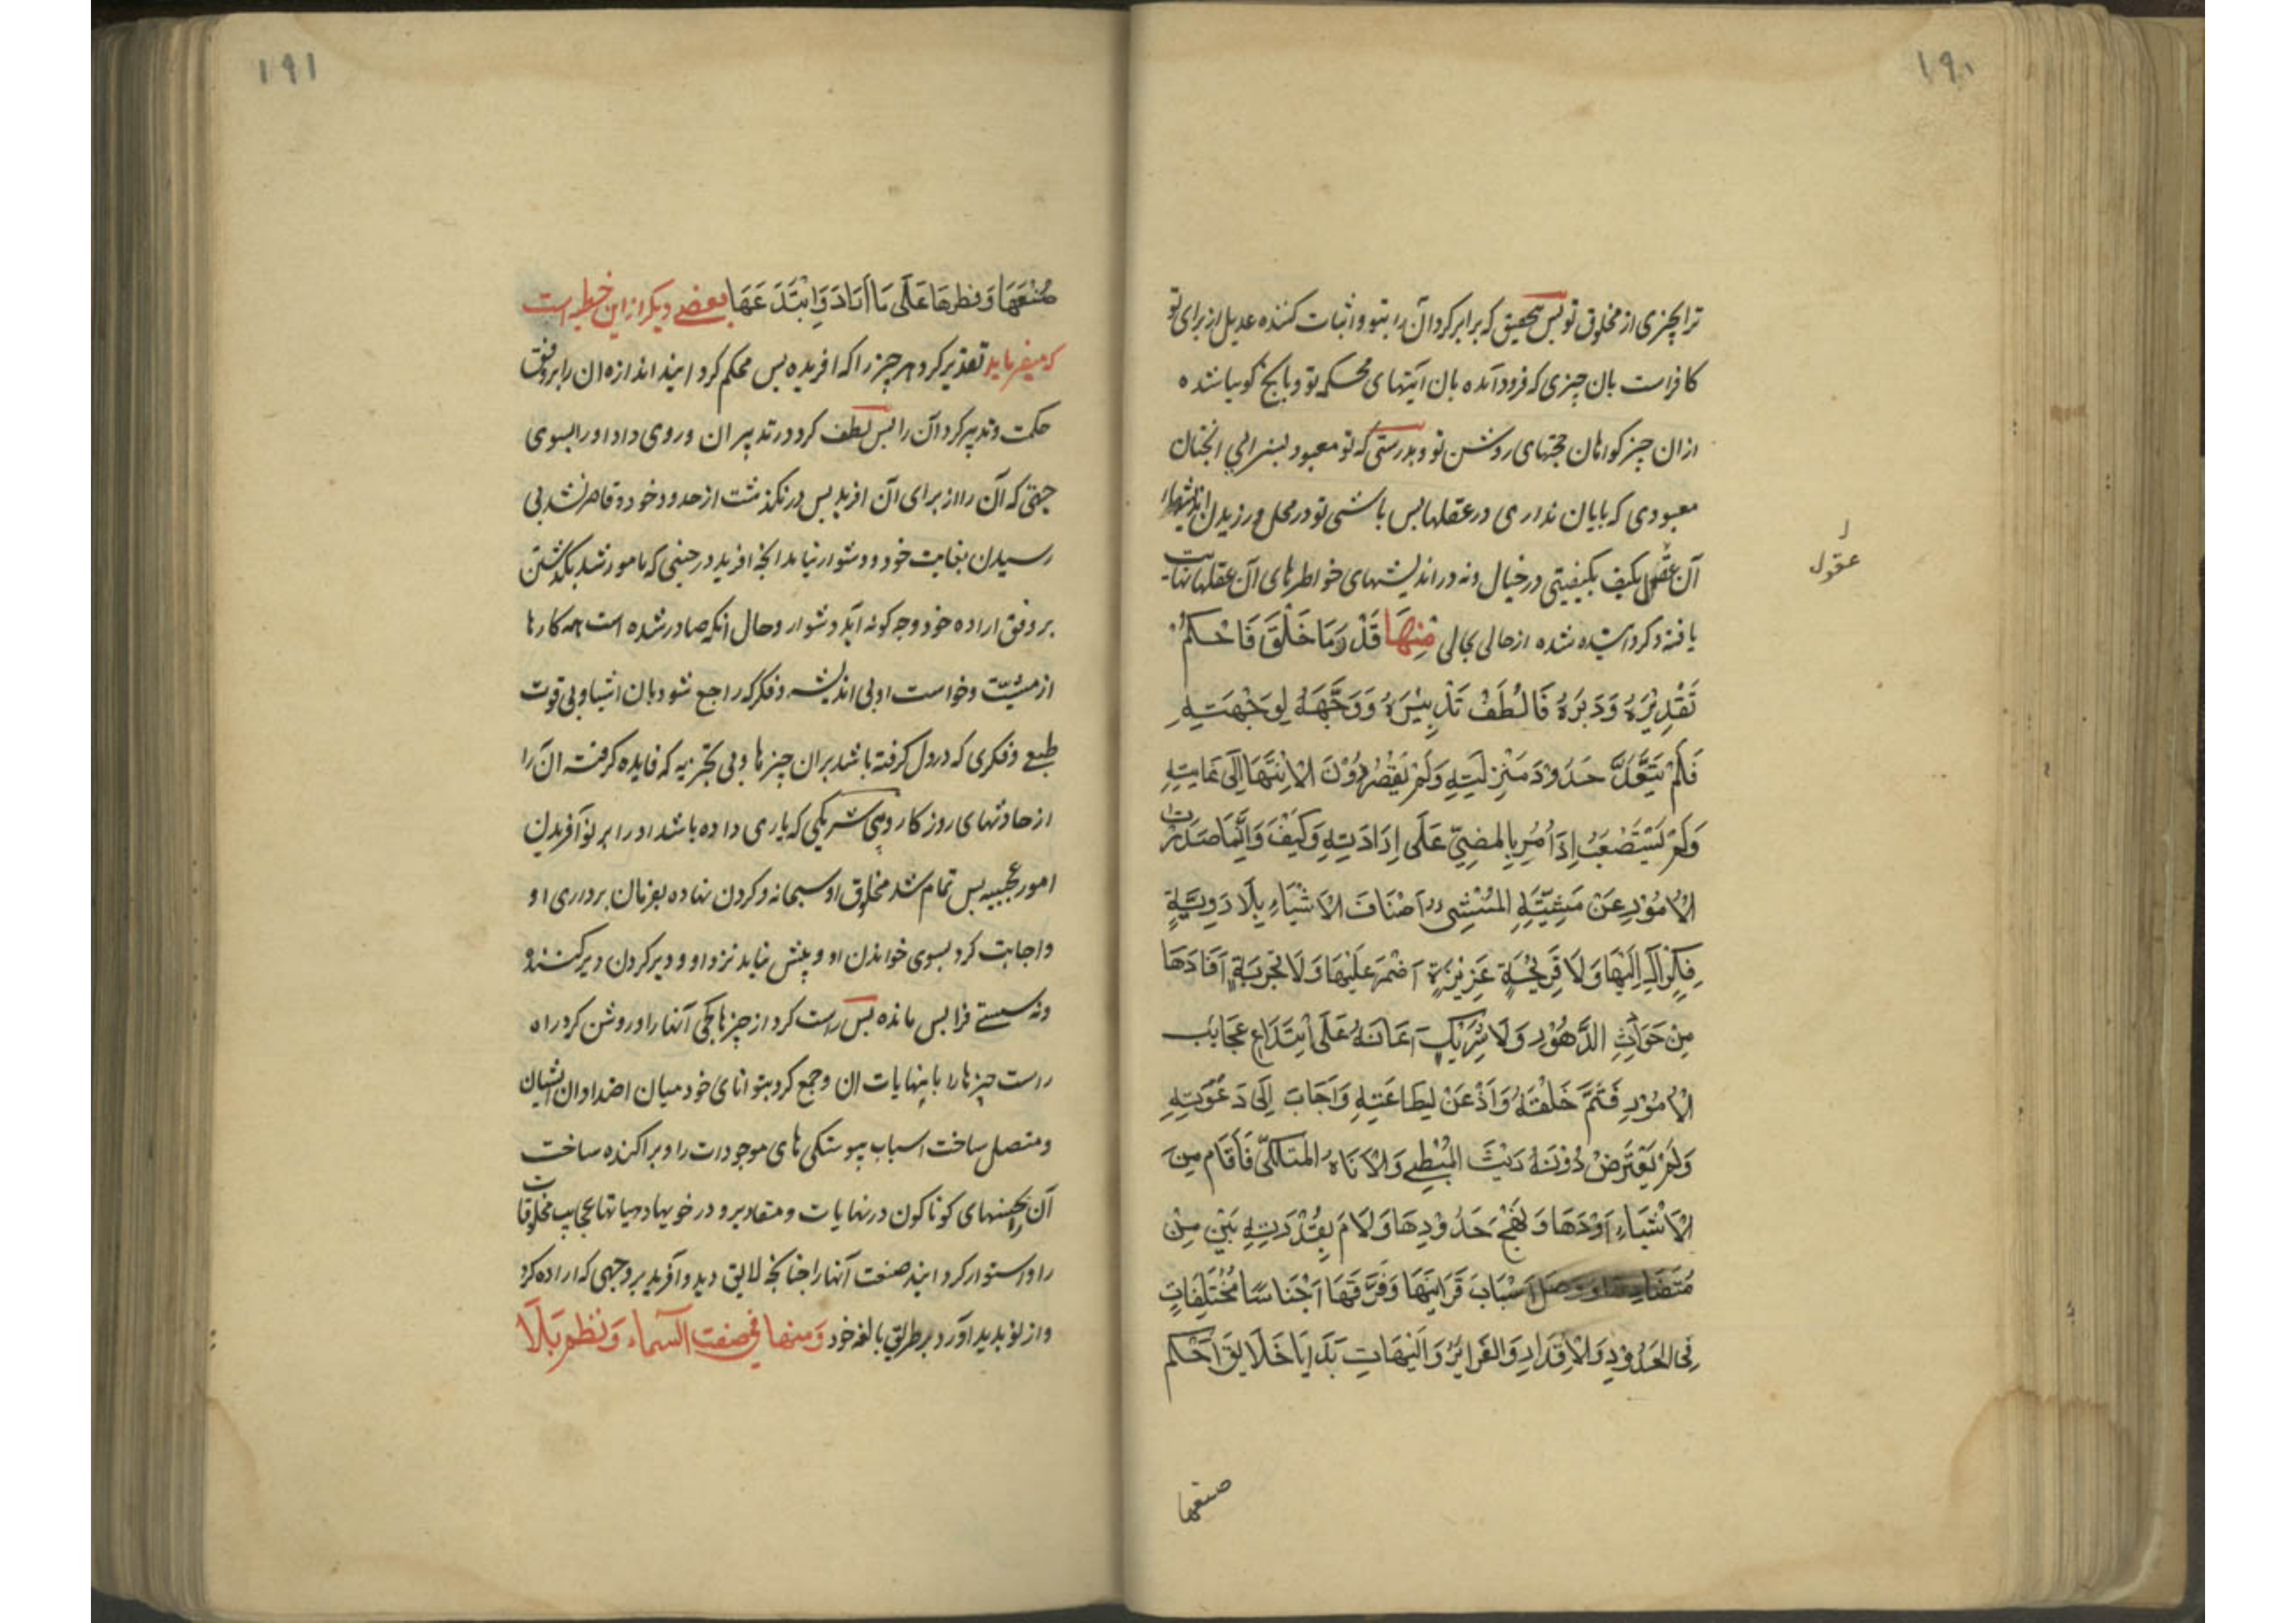 ۱۹۰
ترا بچیزی از مخلوق تو پس بتحقیق که برابر کرد آن را بتو و اثبات کننده عدیل از برای تو
کافر است بان چیزی که فرود آمده بان ایتهای محکمه تو و بانچ کویا شده
از ان چیز کواهان حجتهای روشن تو و بدرستی که تو معبود بسزایی انچنان
معبودی که پایان نداری در عقلها پس باشی تو در محل ورزیدن اندیشهاء
آن عقول بکیف بکیفیتی در خیال ونه در اندیشهای خواطرهای آن عقلها نهایت
عقول
یافته و کردانیده شده از حالی بحالی مِنهَا قَدَّرَ مَا خَلَقَ فَاحْکَمَ
تَقْدِیْرَهُ وَدَبَرَهُ فَالْطَفَ تَدْبِیْرَهُ وَوَجَّهَهُ لِوَجْهَتِهِ
فَلَمْ یَتَعَدَّ حَدُوْدَ مَنْزِلَتِهِ وَلَمْ یَقْصُرْ دُوْنَ الْاِنْتِهَا اِلَی غَایَتِهِ
وَلَمْ یَسْتَصْعَبْ اِذَا اُمُرِ بِالمضِیِّ عَلَی اِرَادَتِهِ وَکَیْفَ وَاِنَّمَا صَدَرَتْ
الْاُمُوْرِ عَنْ مَشِیَّتَهِ المُنْشِی اَصْنَافَ الْاَشْیَاءِ بِلَا رَوِیَّةٍ
فِکْرٍ اٰلَ اِلَیْهَا وَلَا قَرِیْحَةٍ غَرِیْزَةٍ اَضْمَرَ عَلَیْهَا وَلَا تَجْرِبَةٍ اَفَادَهَا
مِنْ حَوَادِثِ الدَّهُوْرِ وَلَا شَرِیْكٍ اَعَانَهُ عَلَی اِبْتَدَاعِ عَجَائبِ
الْاُمُوْرِ فَتَمَّ خَلْقَهُ وَاَذْعَنَ لِطَاعَتِهِ وَاَجَابَ اِلَی دَعْوَتِهِ
وَلَمْ یَعْتَرِضْ دُوْنَهُ رَیْثَ المُبْطِیِ وَلَا اَنَاهُ المُتَلَکِّیِ فَاَقَامَ مِنَ
الْاَشْیَاءِ اَوَدَهَا وَ نَهَجَ حَدُوْدِهَا وَلَامَ بِقُدْرَتِهِ بَیْنَ مِنْ
مُتَضَادِهَا وَوَصَلَ اَسْبَابَ قَرَائِنِهَا وَفَرَّقَهَا اَجْنَاسًا مُخْتَلِفَاتٍ
فِی الحَدُوْدِ وَالْاَقْدَارِ وَالغَرَایِزْ وَالْهَیْاٰتِ بَدَایَا خَلَایِقَ اَحْکَمَ
صنعها
۱۹۱
صُنْعَهَا وَ فطرها عَلَی مَا اَرَادَ وَ ابْتَدَعَهَا بعضی دیکر از این خطبه است
که میفرماید تقدیر کرد هر چیز را که افریده پس محکم کردانید اندازه ان را بر وفق
حکمت و تدبیر کرد آن را پس لطف کرد در تدبیر ان و روی داد او را بسوی
جهتی که آن را از برای آن افرید پس در نکذشت از حدود خود و قاصر نشد بی
رسیدن بغایت خود و دشوار نیامد انچه افرید در حینی که مامور شد بکذشتن
بر وفق اراده خود و چه کونه آید دشوار و حال انکه صادر شده است همه کارها
از مشیّت و خواست او بی اندیشه و فکر که راجع شود بان اشیا و بی قوت
طبع و فکری که در دل گرفته باشد بران چیزها و بی تجربه که فایده کرفته ان را
از حادثهای روزکار و بی شریکی که یاری داده باشد او را بر نو آفریدن
امور عجیبه پس تمام شد مخلوق او سبحانه و کردن نهاده بفرمان برداری او
و اجابت کرد بسوی خواندن او و پیش نیاید نزد او و دیر کردن دیر کننده
و نه سستے فرا پس مانده پس راست کرد از چیزها کجی آنها را و روشن کرد راه
راست چیزها را با نهایات ان و جمع کرد بتوانای خود میان اضداد ان ایشان
و متصل ساخت اسباب پیوستگی های موجودات را و پراکنده ساخت
آن را بجنسهای کوناکون در نهایات و مقادیر و در خویها و هیاتها عجایب مخلوقات
را و استوار کردانید صنعت آنها را چنانچه لایق دید و آفرید بر وجهی که اراده کرد
و از نو پدید آورد بر طریق بالغه خود وَمنها فی صفت السّماء وَ نَظمَ بَلَا